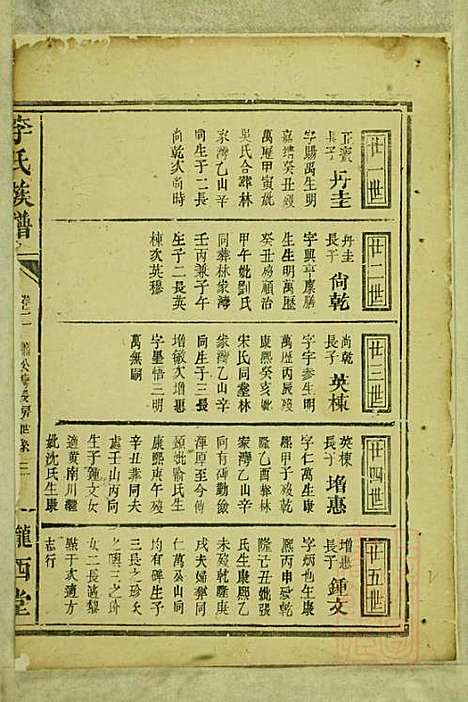 廿一世
正賓長子 丹圭
字賜禹生明
嘉靖癸丑歿
萬歷甲寅妣
吳氏合葬林
家灣乙山辛
向生子二長
尚乾次尚時
廿二世
丹圭長子 尚乾
字興亨廩膳
生生明萬歷
癸丑歿順治
甲午妣劉氏
同葬林家灣
壬丙兼子午
生子二長英
棟次英穆
廿三世
尚乾長子 英棟
字宇參生明
萬歷丙辰歿
康熙癸亥妣
宋氏同塋林
家灣乙山辛
向生子三長
增敏次增惠
字墨悟三明
萬無嗣
廿四世
英棟長子 增惠
字仁萬生康
熙甲子歿乾
隆乙酉葬林
家灣乙山辛
向有碑勤儉
渾厚至今傳
頌妣喻氏生
康熙庚午歿
辛丑葬同夫
處壬山丙向
生子鍾文女
適黃南川繼
妣沈氏生康
廿五世
增惠長子 鍾文
字炳也生康
熙丙申歿乾
隆己丑妣張
氏生康熙乙
未歿乾隆庚
戌夫婦葬同
仁萬公山向
均有碑生子
三長之珍次
之瓚三之琦
女二長適黎
點于次適方
志行
李氏族譜
卷二
隴西堂